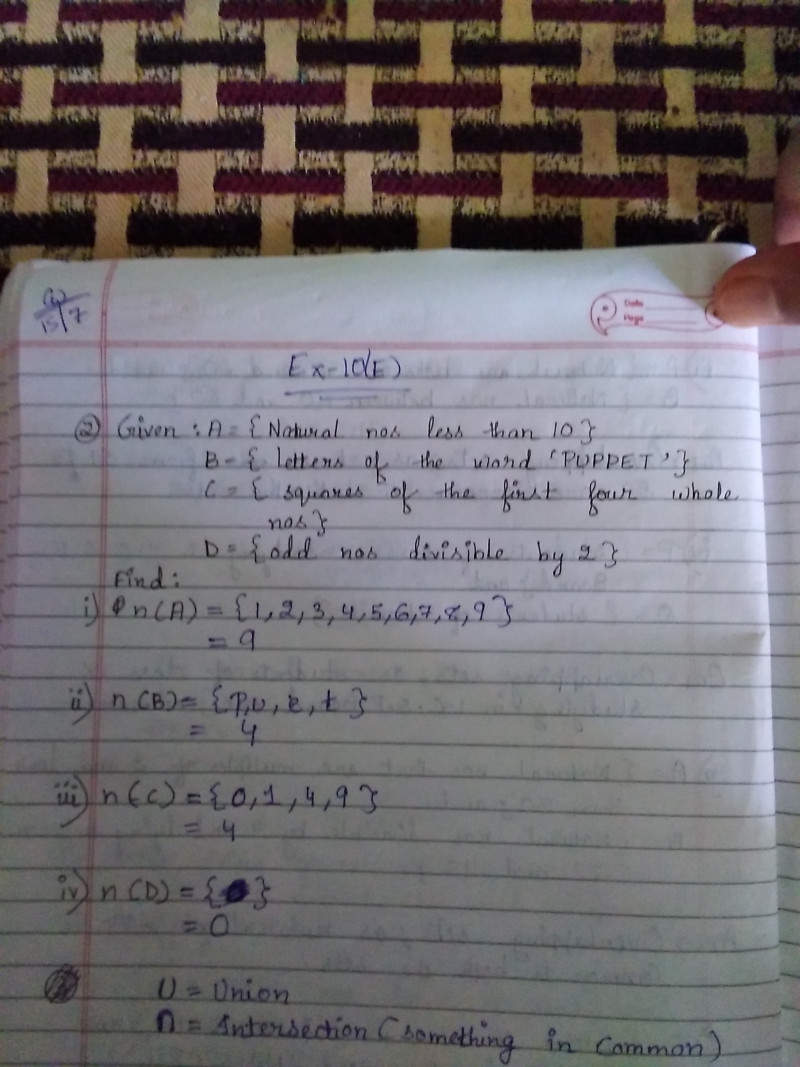 15/7
Date
Page
Ex-10(E)
② Given : A = { Natural nos less than 10 }
B = { letters of the word 'PUPPET' }
C = { squares of the first four whole
nos }
D = { odd nos divisible by 2 }
Find :
i) n(A) = {1, 2, 3, 4, 5, 6, 7, 8, 9}
= 9
ii) n(B) = {p, u, e, t}
= 4
iii) n(C) = {0, 1, 4, 9}
= 4
iv) n(D) = { }
= 0
U = Union
∩ = Intersection (something in common)